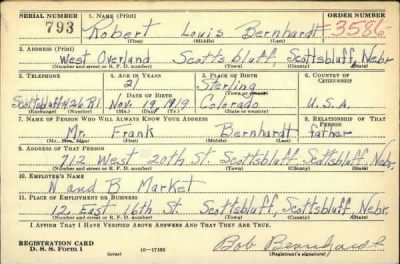 SERIAL NUMBER 1. NAME (Print) ORDER NUMBER
793 Robert Louis Bernhardt 3586
(First) (Middle) (Last)
2. ADDRESS (Print)
West Overland Scotts bluff, Scottsbluff, Nebr
(Number and street or R. F. D. number) (Town) (County) (State)
3. TELEPHONE 4. AGE IN YEARS 5. PLACE OF BIRTH 6. COUNTRY OF CITIZENSHIP
21 Sterling
DATE OF BIRTH (Town or county)
Scottsbluff Nov. 19, 1919 Colorado U.S.A.
(Exchange) (Number) (Mo.) (Day) (Yr.) (State or country)
7. NAME OF PERSON WHO WILL ALWAYS KNOW YOUR ADDRESS 8. RELATIONSHIP OF THAT PERSON
Mr. Frank Bernhardt father
(Mr., Mrs., Miss) (First) (Middle) (Last)
9. ADDRESS OF THAT PERSON
712 West 20th St. Scottsbluff, Scottsbluff, Nebr.
(Number and street or R. F. D. number) (Town) (County) (State)
10. EMPLOYER'S NAME
N and B Market
11. PLACE OF EMPLOYMENT OR BUSINESS
12 East 16th St. Scottsbluff, Scottsbluff, Nebr.
(Number and street or R. F. D. number) (Town) (County) (State)
I AFFIRM THAT I HAVE VERIFIED ABOVE ANSWERS AND THAT THEY ARE TRUE.
REGISTRATION CARD
D. S. S. Form 1 (over) 16—17105 Bob Bernhardt
(Registrant's signature)